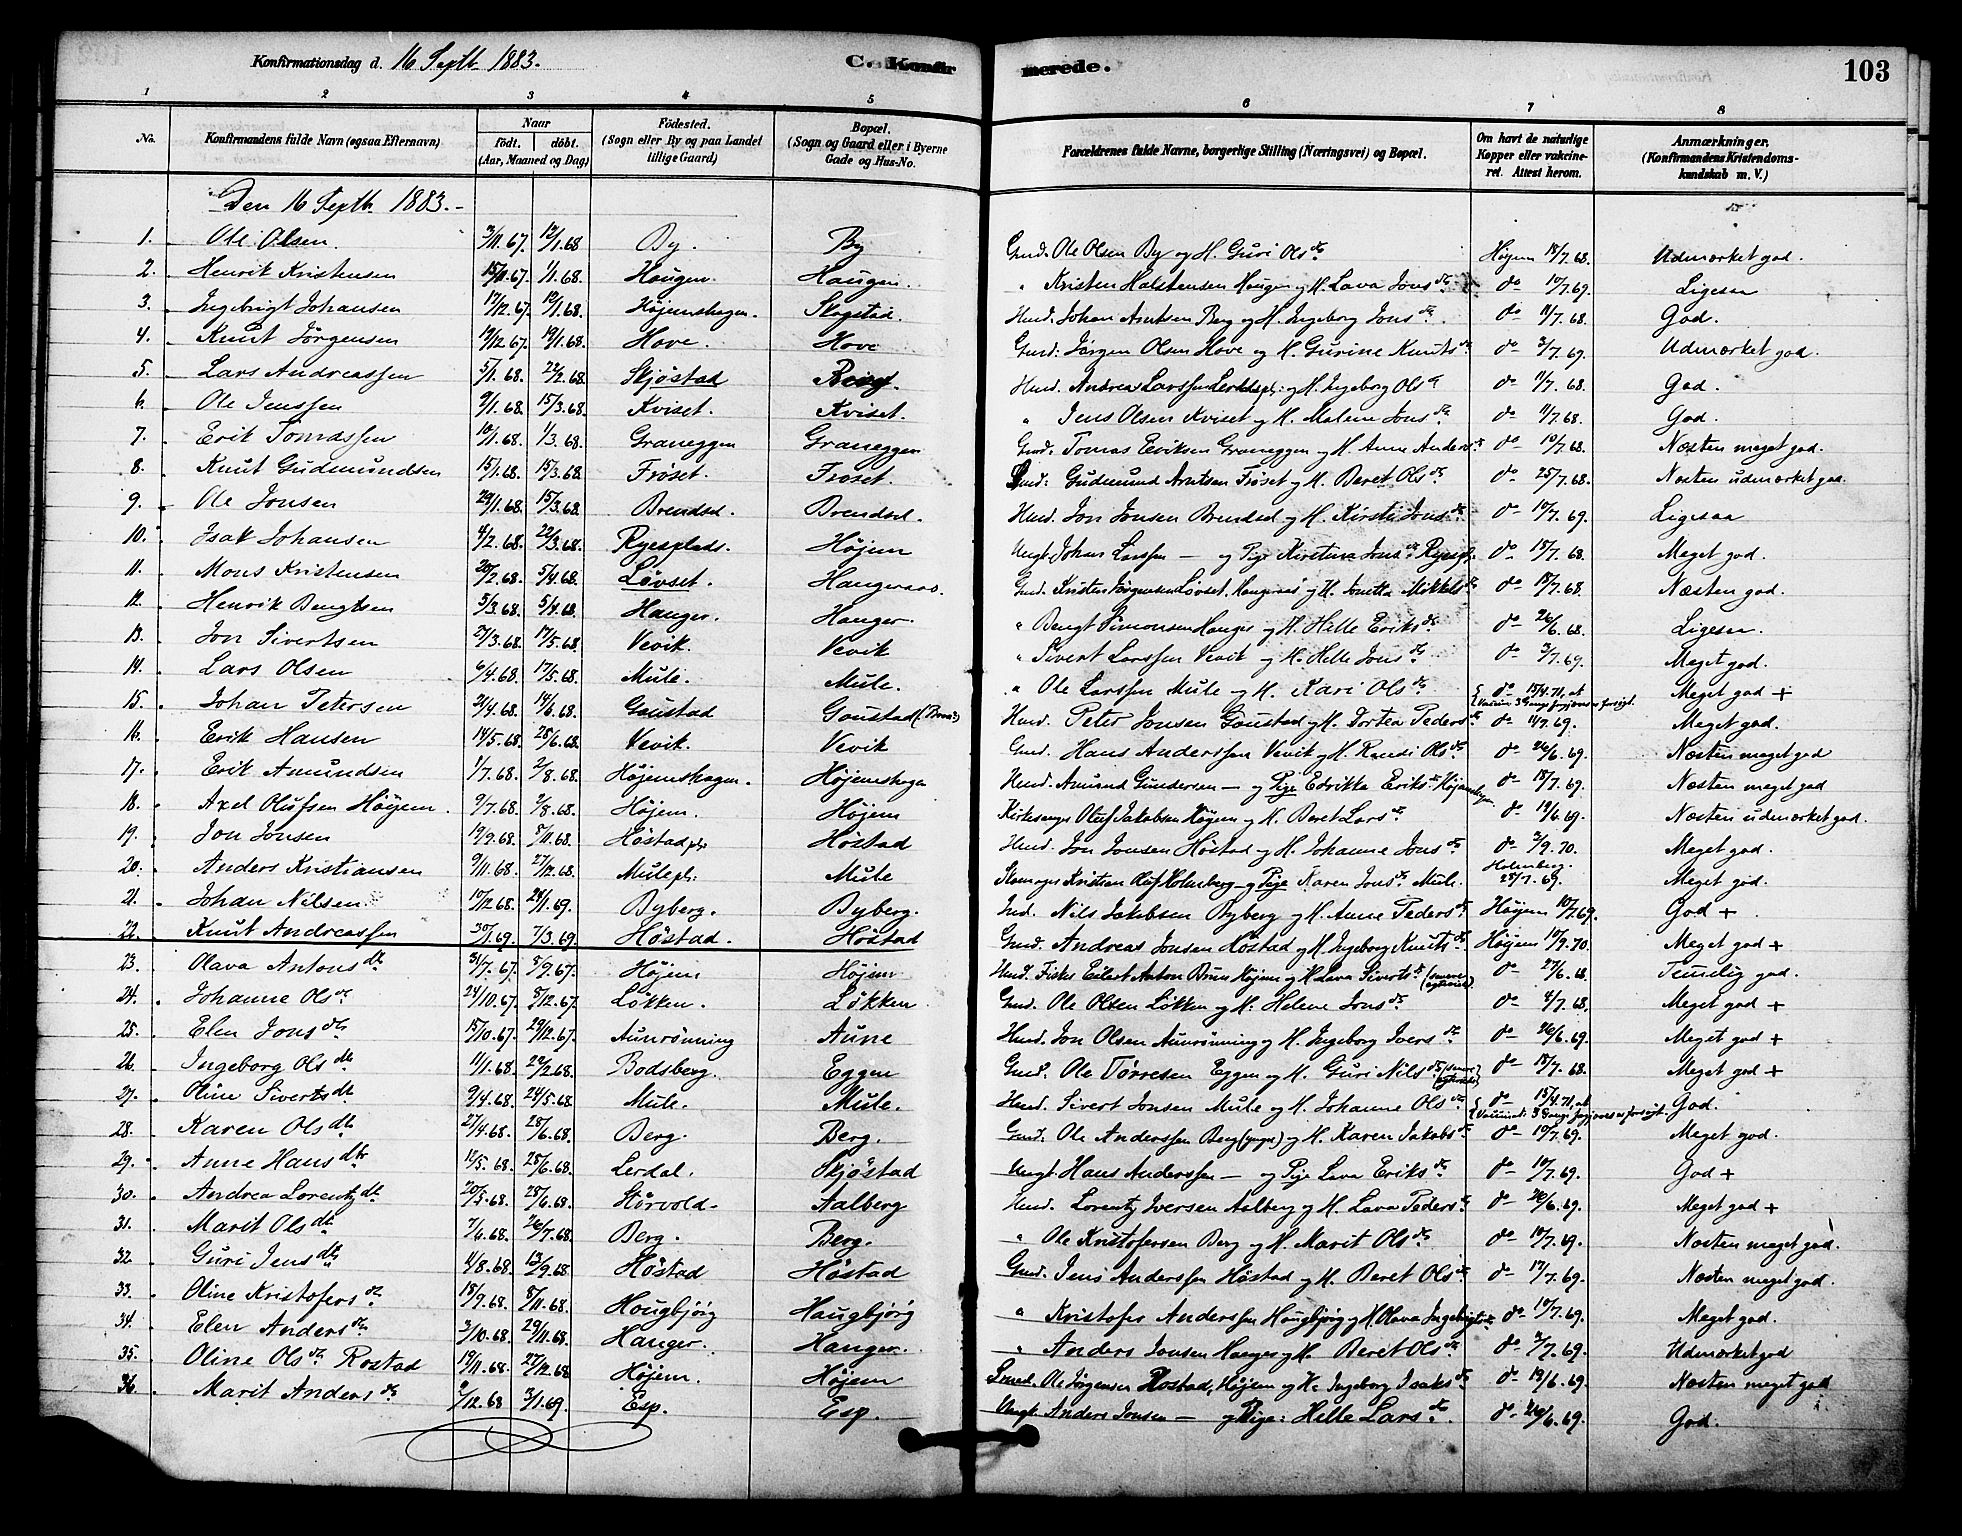 Konfirmationsdag d. 16 Septb. 1883.
C. Konfirmerede.
103
1 2 3 4 5 6 7 8
No.
Konfirmandens fulde Navn (ogsaa Efternavn)
Naar
födt. döbt.
(Aar, Maaned og Dag)
Födested.
(Sogn eller By og paa Landet
tillige Gaard)
Bopæl.
(Sogn og Gaard eller i Byerne
Gade og Hus-No.
Forældrenes fulde Navne, borgerlige Stilling (Næringsvei) og Bopæl.
Om havt de naturlige
Kopper eller vakcine-
ret. Attest herom.
Anmærkninger.
(Konfirmandens Kristendoms-
kundskab m. V.)
Den 16 Septb. 1883.
1. Ole Olsen. 3/11.67. 12/1.68 By. By Gmd. Ole Olsen By og H. Guri Olsdtr Højem 18/7.68. Udmærket god.
2. Henrik Kristensen 15/11.67. 1/1.68. Haugen. Haugen. " Kristen Halstensen Haugen og H. Lava Jonsdtr do 10/7.69. Ligesaa
3. Ingebrigt Johansen 17/12.67. 12/1.68. Højemshagen. Skogstad. Hmd. Johan Arntsen Berg og H. Ingeborg Jonsdtr. do 11/7.68. God.
4. Knut Jørgensen 19/12.67. 19/1.68. Hove. Hove Gmd. Jørgen Olsen Hove og H. Gurine Knutsdtr do 3/7.69. Udmærket god.
5. Lars Andreassen 5/1.68. 22/2.68. Skjøstad Berg. Hmd. Andreas Larssen Lerdalspl. og H. Ingeborg Olsdtr do 11/7.68. God.
6. Ole Jenssen 9/1.68. 15/3.68. Kviset. Kviset. " Jens Olsen Kviset og H. Malene Jonsdtr do 11/7.68. God.
7. Erik Tomassen 10/1.68. 1/3.68. Graneggen Graneggen Gmd. Tomas Eriksen Graneggen og H. Anne Andersdtr do 10/7.68. Næsten meget god.
8. Knut Gudmundsen 15/1.68. 15/3.68. Frøset. Frøset. Gmd. Gudmund Arntsen Frøset og H. Beret Olsdtr do 25/7.68. Næsten udmærket god.
9. Ole Jonsen 29/1.68. 15/3.68. Brendsel. Brendsel. Hmd. Jon Jonsen Brendsel og H. Kirsti Jonsdtr. do 10/7.69. Ligesaa
10. Isak Johansen 4/2.68. 22/3.68. Ryesplads. Højem Ungk. Johan Larssen — og Pige Kirstine Jonsdtr Ryespl. do 15/7.68. Meget god.
11. Mons Kristensen 20/2.68. 5/4.68. Løvset. Hangeraas. Gmd. Kristen Jørgensen Løvset, Hangeraas og H. Jonetta Mikkelsdtr do 18/7.68. Næsten god.
12. Henrik Bengtsen 5/3.68. 5/4.68. Hanger. Hanger. " Bengt Simonsen Hanger og H. Helle Eriksdtr. do 26/6.68. Ligesaa.
13. Jon Sivertsen 27/3.68. 17/5.68. Vevik. Vevik " Sivert Larssen Vevik og H. Helle Jonsdtr. do 3/7.69. Meget god.
14. Lars Olsen 6/4.68. 17/5.68. Mule. Mule. " Ole Larssen Mule og H. Kari Olsdtr do 15/4.71, at Vaccin. 3 Gange forgjæves er forsøgt. Meget god +
15. Johan Petersen 21/4.68. 14/6.68. Goustad Goustad Hmd. Peter Jonsen Goustad og H. Dortea Pedersdtr do 11/7.69. Meget god.
16. Erik Hansen 14/5.68. 28/6.68. Vevik. Vevik Gmd. Hans Anderssen Vevik og H. Randi Olsdtr do 26/6.69. Næsten meget god
17. Erik Amundsen 1/7.68. 2/8.68. Højemshagen. Højemshagen Hmd. Amund Gundersen — og Pige Edrikka Eriksdtr Højemshagen do 18/7.69. Næsten meget god
18. Axel Olufsen Höyem. 9/7.68. 9/8.68. Höjem. Höjem Kirkesanger Oluf Jakobsen Höjem og H. Beret Larsdtr. do 19/6.69. Næsten udmærket god.
19. Jon Jonsen 19/9.68. 8/11.68. Høstadpl. Høstad Hmd. Jon Jonsen Høstad og H. Johanne Jonsdtr. do 3/9.70. Meget god.
20. Anders Kristiansen 9/11.68. 27/12.68. Mulepl. Mule Skomager Kristian Oluf Holmberg og Pige Karen Jonsdtr Mule. Holmberg. 28/7.69. Meget god.
21. Johan Nilsen 10/12.68. 24/1.69. Byberg. Byberg. Ind. Nils Jakobsen Byberg og H. Anne Pedersdtr Höjem 10/7.69. God +
22. Knut Andreassen 30/1.69. 7/3.69. Høstad. Høstad Gmd. Andreas Jonsen Høstad og H. Ingeborg Knutsdtr Höjem 10/9.70. Meget god +
23. Olava Antonsdtr 31/7.67. 8/9.67. Højem Højem Hmd. Fisker Eilert Anton Brun Højem og H. Lava Sivertsdtr do 27/6.68. Temelig god.
24. Johanne Olsdtr 24/10.67. 8/12.67. Løkken. Løkken. Gmd. Ole Olsen Løkken og H. Helene Jonsdtr do 4/7.68. Meget god +
25. Elen Jonsdtr 15/10.67. 29/12.67. Aunrønning Aune Hmd. Jon Olsen Aunrønning og H. Ingeborg Iversdtr. do 26/6.69. Meget god +
26. Ingeborg Olsdtr 11/1.68. 22/2.68. Bodsberg. Eggen Gmd. Ole Tørresen Eggen og H. Guri Nilsdtr do 18/7.68. Meget god +
27. Oline Sivertsdtr 9/4.68. 24/5.68 Mule. Mule. Hmd. Sivert Jonsen Mule og H. Johanne Olsdtr. do 15/4.71, at Vaccinat. 3 Gange forgjæves er forsøgt. God.
28. Karen Olsdtr 27/4.68. 28/6.68. Berg. Berg. Gmd. Ole Anderssen Berg (yngre) og H. Karen Jakobsdtr do 19/7.69. Meget god.
29. Anne Hansdtr 12/5.68. 28/6.68. Lerdal. Skjøstad Ungk. Hans Anderssen — og Pige Lava Eriksdtr do 10/7.69. God +
30. Andrea Lorentzdtr 20/5.68. 28/6.68. Størvold. Aalberg Hmd. Lorentz Iversen Aalberg og H. Lava Pedersdtr do 26/6.69. Meget god +
31. Marit Olsdtr 7/6.68. 26/7.68. Berg. Berg. " Ole Kristofersen Berg og H. Marit Olsdtr do 10/7.69. Næsten meget god.
32. Guri Jensdtr 4/8.68. 13/9.68. Høstad Høstad Gmd. Jens Anderssen Høstad og H. Beret Olsdtr do 17/7.69. Næsten meget god.
33. Oline Kristofersdtr 18/9.68. 8/11.68. Hougbjörg Haugbjörg " Kristofer Anderssen Haugbjørg og H. Olava Ingebrigtsdtr do 10/7.69. Meget god.
34. Elen Andersdtr 3/10.68. 29/11.68. Hanger. Hanger. " Anders Jonsen Hanger og H. Beret Olsdtr do 3/7.69. Udmærket god
35. Oline Olsdtr Rostad 19/11.68. 27/12.68 Højem. Højem Ole Jørgensen Rostad, Højem og H. Ingeborg Isaksdtr do 19/6.69. Næsten meget god
36. Marit Andersdtr 2/12.68 3/1.69. Esp. Esp. Ungk. Anders Jonsen — og Pige: Helle Larsdtr. do 26/6.69. God.